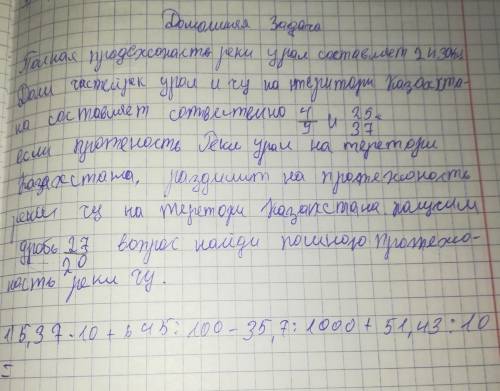 Домошняя Задача
Полная продежсонасть реки урал составляет 2430км
Доли частей рек урал и чу на територи Казахста-
на составляет сотвественно 4/9 и 25/37.
если протеность Реки урал на теретори
Казахстана, раздилит на протежоность
реки чу на теретори Казахстана палучим
дробь 27/20 вопрос найди полною протежо-
ность реки чу.
15,37·10+545:100-35,7:1000+51,43:10